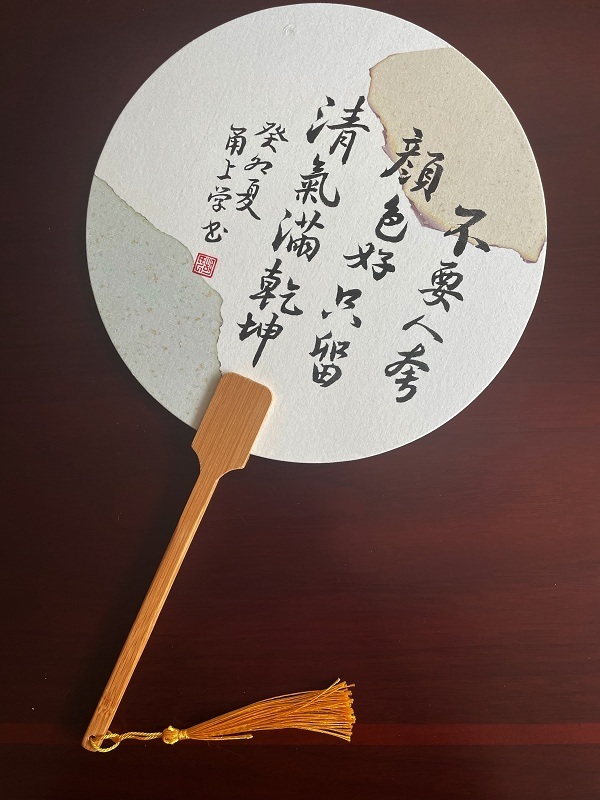 不要人夸
顔色好只留
清氣滿乾坤
癸卯夏
甬上学书